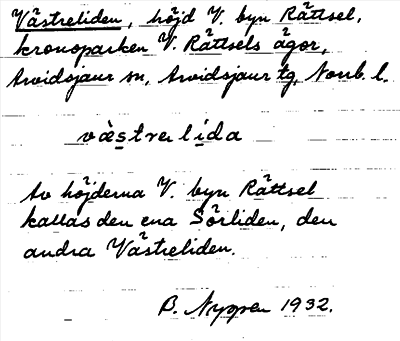 Västreliden, höjd V. byn Rättsel,
kronoparken V. Rättsels ägor,
Arvidsjaur sn, Arvidsjaur tg, Norrb. l.
västrerlida
Av höjderna V. byn Rättsel
kallas den ena Sörliden, den
andra Västreliden.
B. Nygren 1932.